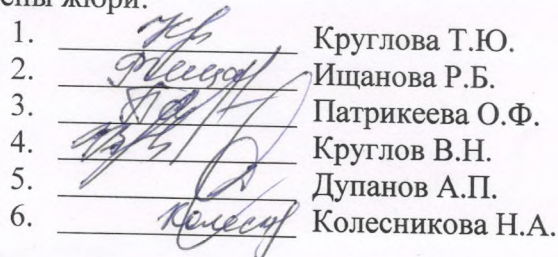 ены жюри:
1. Круглова Т.Ю.
2. Ищанова Р.Б.
3. Патрикеева О.Ф.
4. Круглов В.Н.
5. Дупанов А.П.
6. Колесникова Н.А.